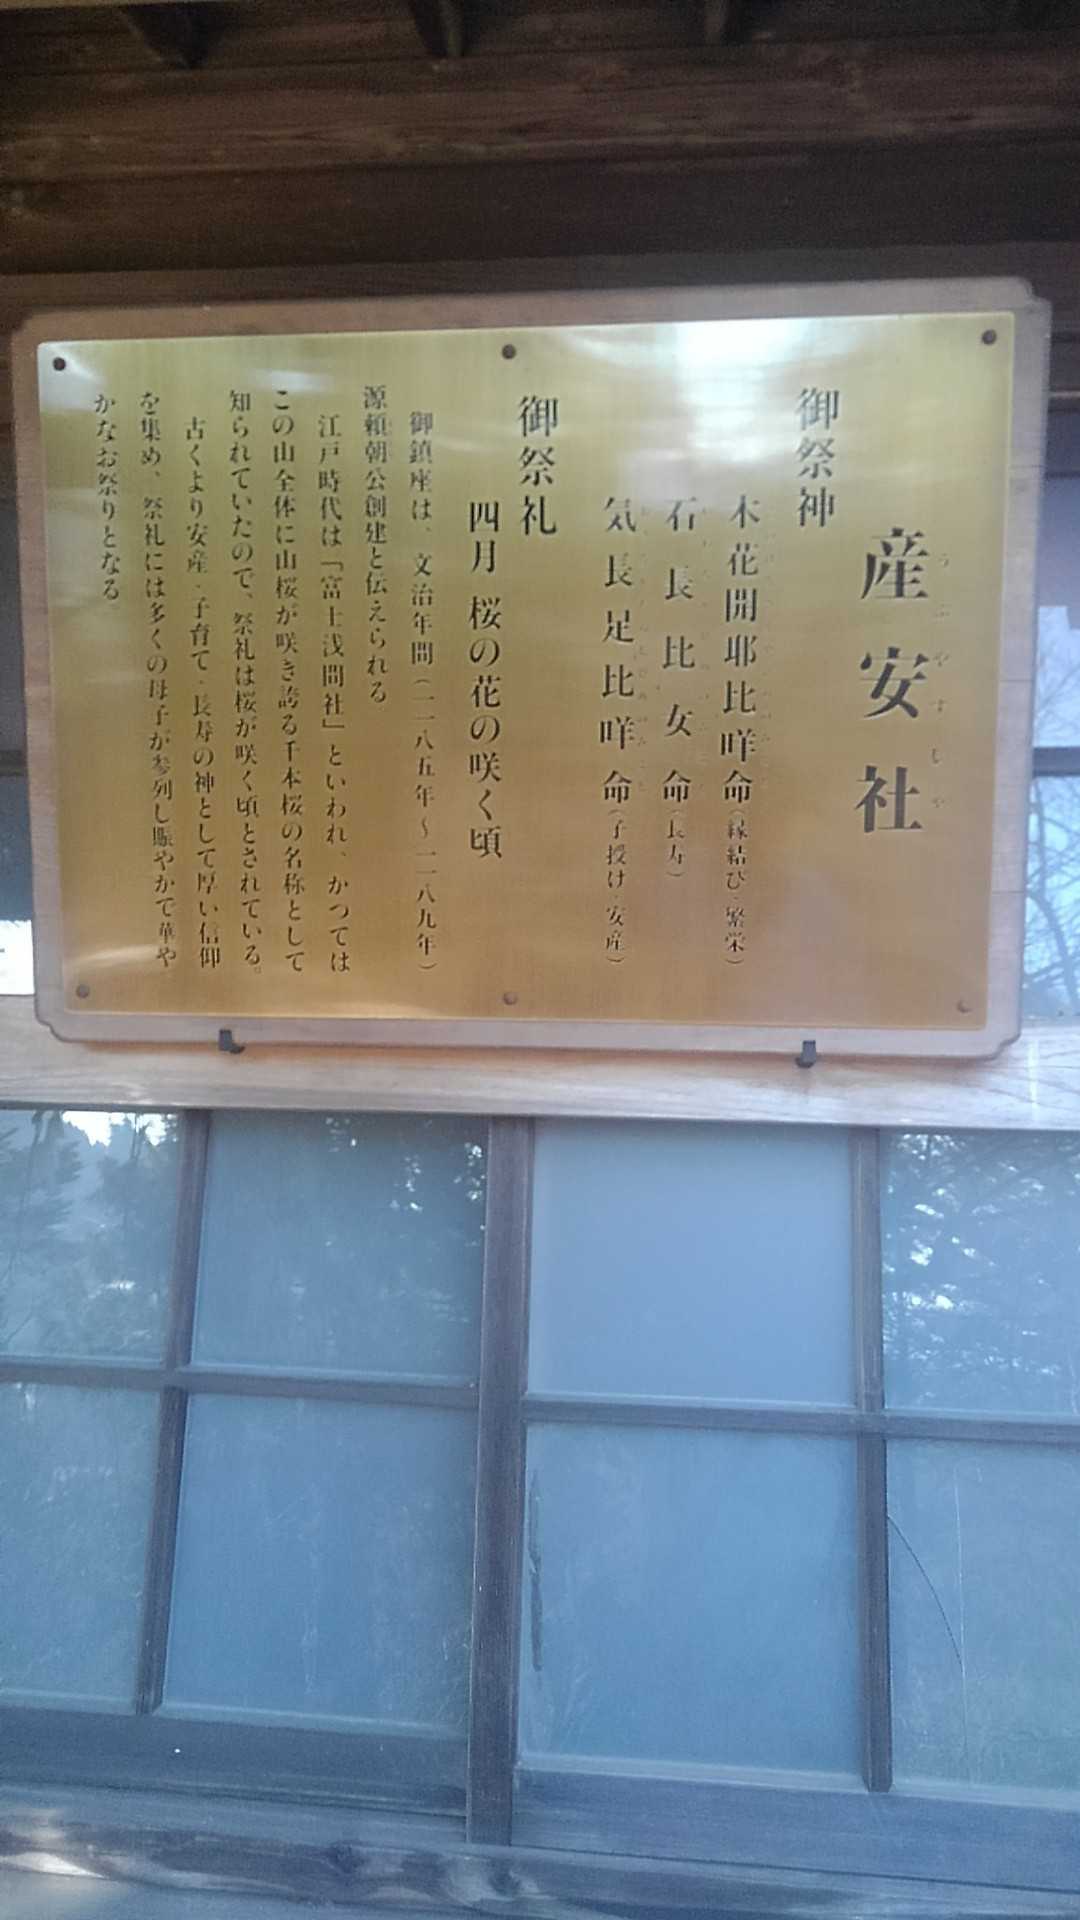 産安社
うぶやすしや
御祭神
木花開耶比咩命(縁結び・繁栄)
石長比女命(長寿)
気長足比咩命(子授け・安産)
御祭礼
四月 桜の花の咲く頃
御鎮座は、文治年間(一一八五年~一一八九年)
源頼朝公創建と伝えられる
江戸時代は「富士浅間社」といわれ、かつては
この山全体に山桜が咲き誇る千本桜の名称として
知られていたので、祭礼は桜が咲く頃とされている。
古くより安産・子育て・長寿の神として厚い信仰
を集め、祭礼には多くの母子が参列し賑やかで華や
かなお祭りとなる